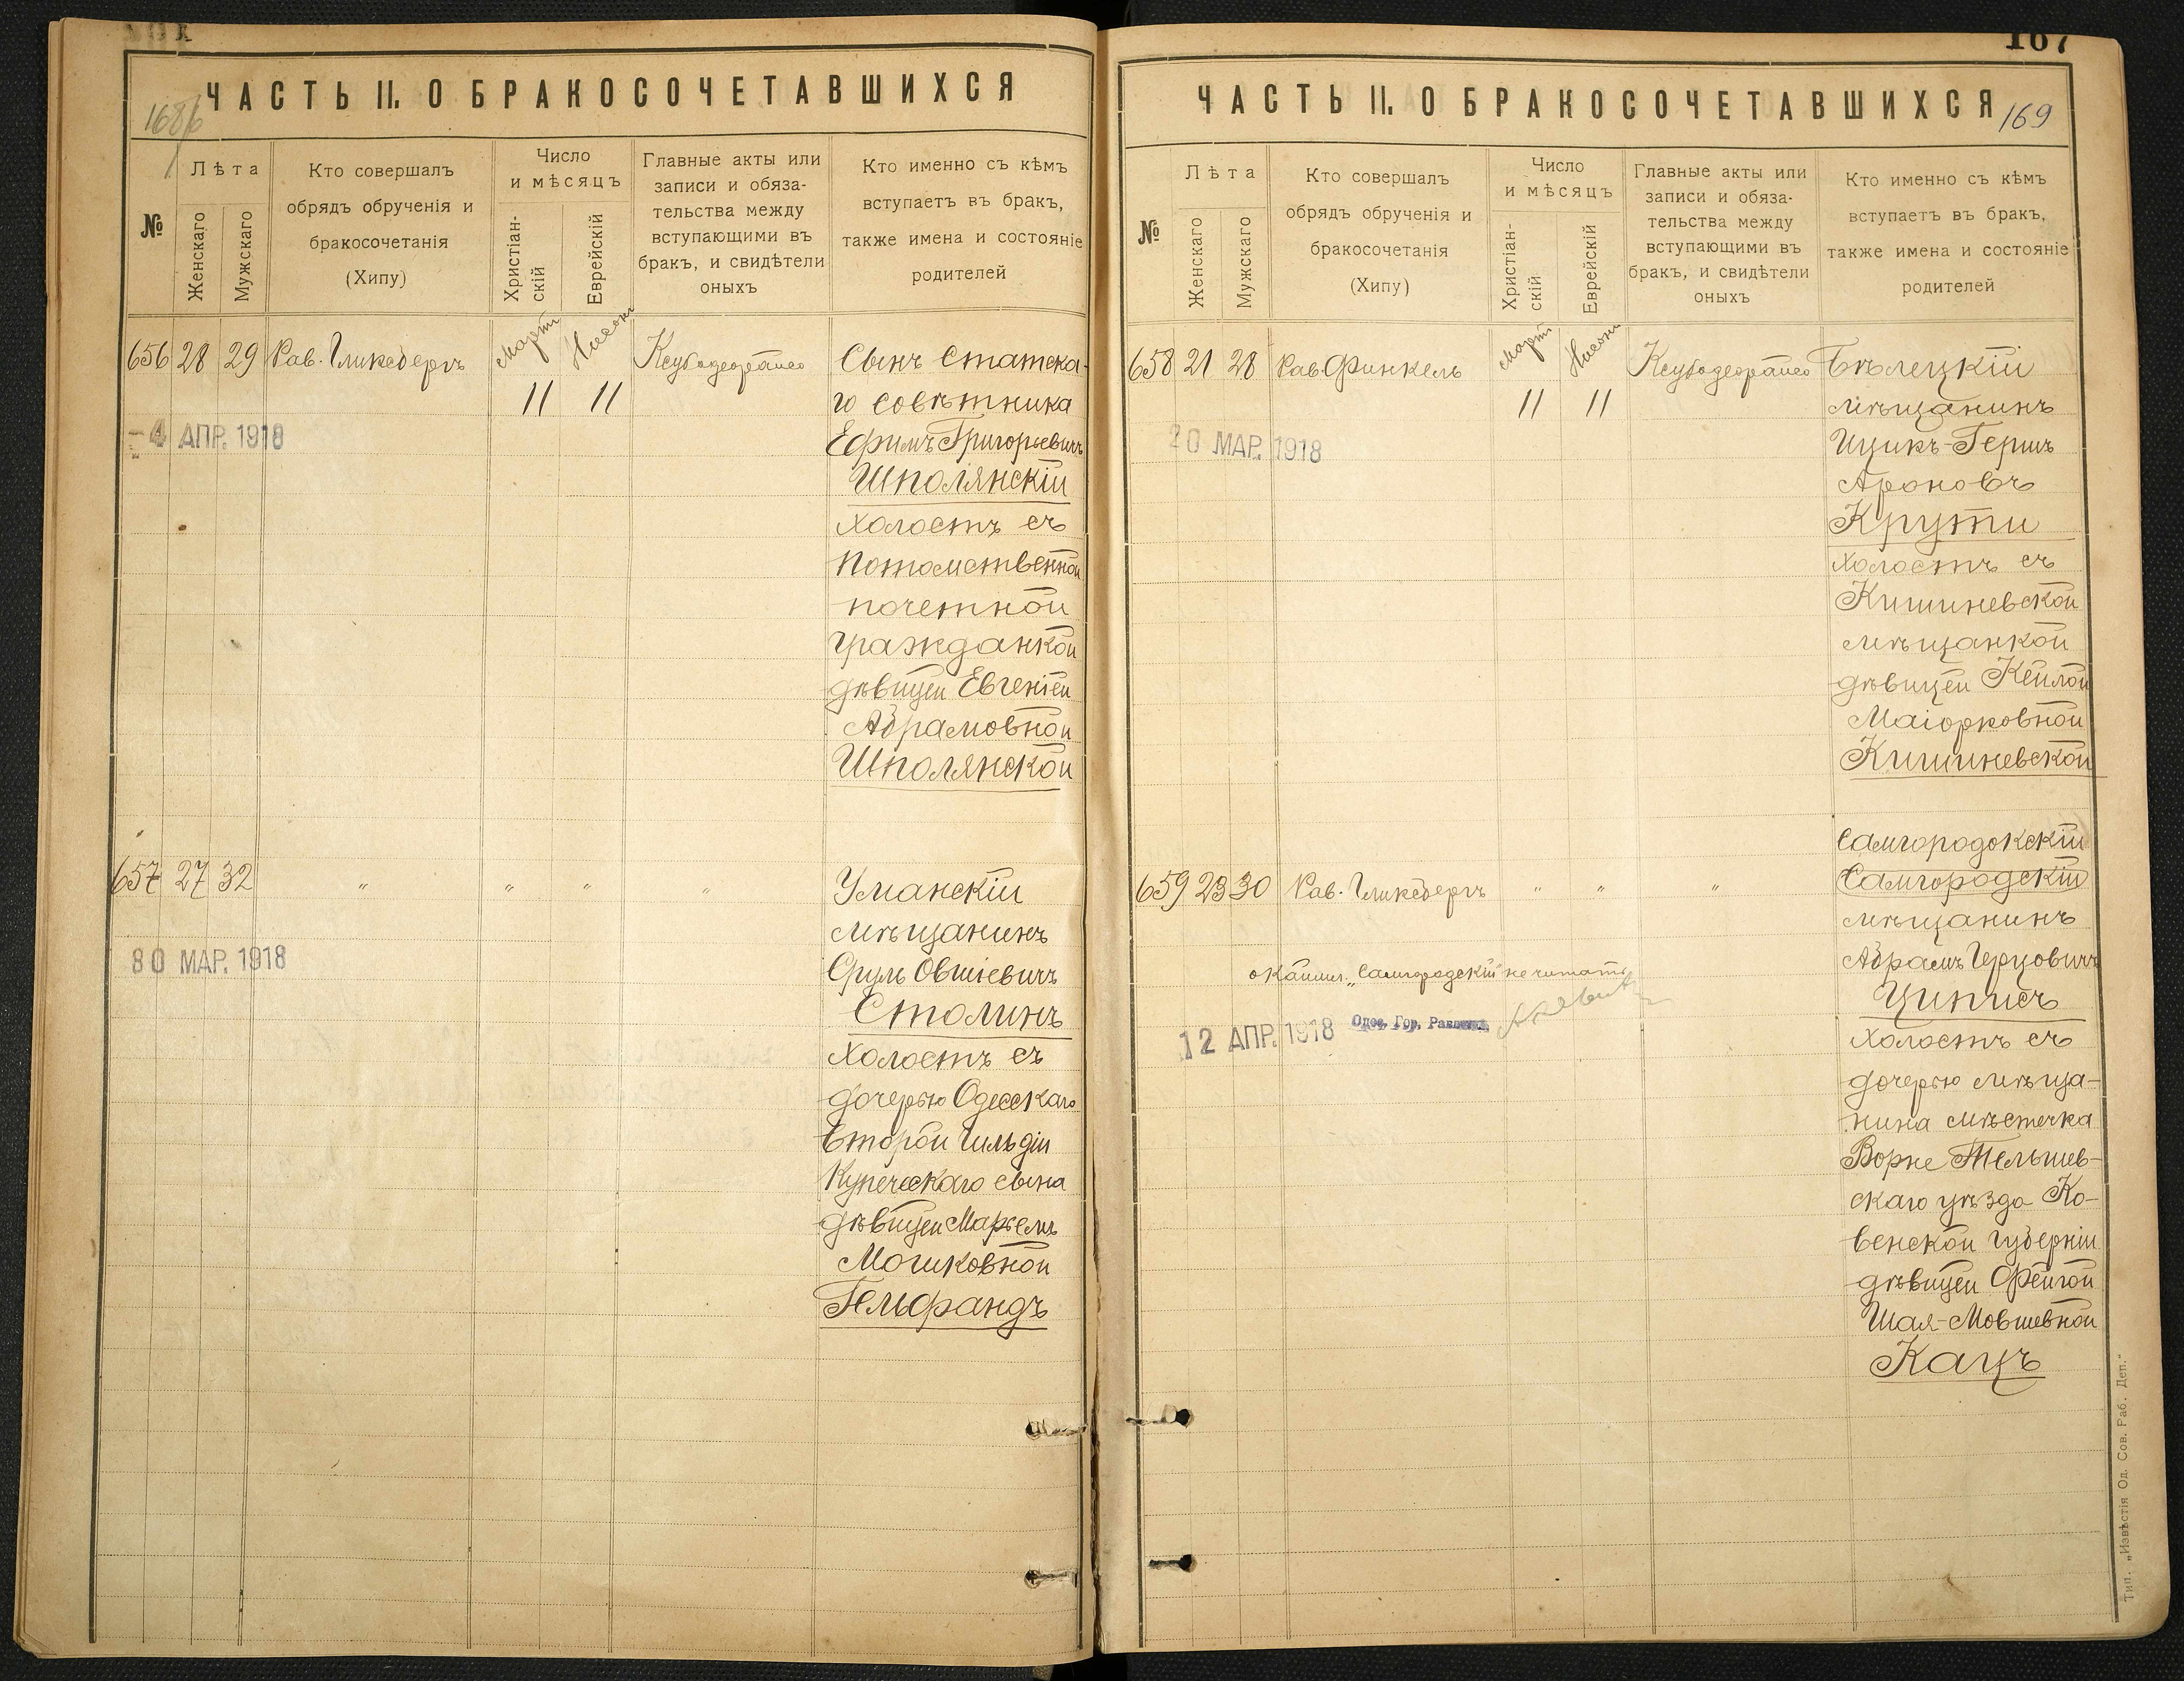 ЧАСТЬ II. О БРАКОСОЧЕТАВШИХСЯ
1686
№
Лѣта
Женскаго
Мужскаго
Кто совершалъ
обрядъ обрученія и
бракосочетанія
(Хипу)
Число
и мѣсяцъ
Христіан-
скій
Еврейскій
Главные акты или
записи и обяза-
тельства между
вступающими въ
бракъ, и свидѣтели
оныхъ
Кто именно съ кѣмъ
вступаетъ въ бракъ,
также имена и состояніе
родителей
656 28 29 Рав. Гликсбергъ Мартъ Нисонъ
11 11
Сынъ Статска-
го совѣтника
Ефимъ Григорьевичъ
Шполянскій
холостъ съ
потомственной
почетной
гражданкой
дѣвицей Евгеніей
Абрамовной
Шполянской
-4 АПР. 1918
657 27 32 " " " "
Уманскій
мѣщанинъ
Сруль Овшіевичъ
Столинъ
холостъ съ
дочерью Одесскаго
второй гильдіи
Купеческаго сына
дѣвицей Марьемъ
Мошковной
Гельфандъ
30 МАР. 1918
167
ЧАСТЬ II. О БРАКОСОЧЕТАВШИХСЯ
169
№
Лѣта
Женскаго
Мужскаго
Кто совершалъ
обрядъ обрученія и
бракосочетанія
(Хипу)
Число
и мѣсяцъ
Христіан-
скій
Еврейскій
Главные акты или
записи и обяза-
тельства между
вступающими въ
бракъ, и свидѣтели
оныхъ
Кто именно съ кѣмъ
вступаетъ въ бракъ,
также имена и состояніе
родителей
658 21 28 Рав Финкель Мартъ Нисонъ
11 11
Бѣлецкій
мѣщанинъ
Ицикъ-Гершъ
Ароновъ
Крути
холостъ съ
Кишиневской
мѣщанкой
дѣвицей Кейлой
Маіорковной
Кишиневской
20 МАР. 1918
659 23 30 Рав. Гликсбергъ " " "
Самгородокскій
Самгородскій
мѣщанинъ
Абрамъ Герцовичъ
Циписъ
холостъ съ
дочерью мѣща-
нина мѣстечка
Ворне Тельшев-
скаго уѣзда Ко-
венской губерніи
дѣвицей Фейгой
Шая-Мовшевной
Кацъ
"Самгородскій" не читать
12 АПР. 1918 Одес. Гор. Раввинъ
Тип. „Извѣстія Од. Сов. Раб. Деп."